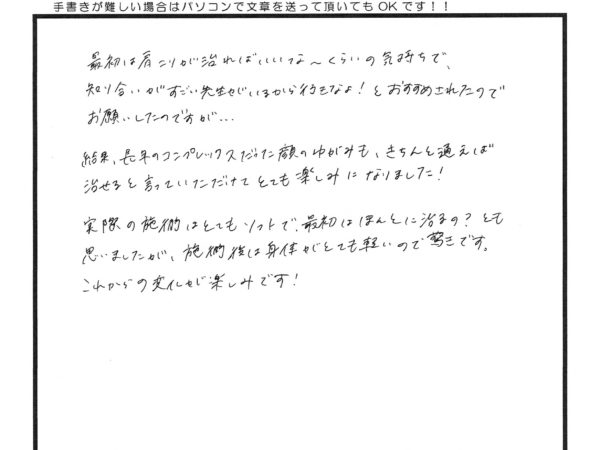 手書きが難しい場合はパソコンで文章を送って頂いてもOKです!!
最初は肩こりが治ればいいな〜くらいの気持ちで、
知り合いがすごい先生がいるから行きなよ!とおすすめされたので
お願いしたのですが…
結果、長年のコンプレックスだった顔のゆがみも、きちんと通えば
治せると言っていただけてとても楽しみになりました!
実際の施術はとてもソフトで、最初はほんとに治るの?とも
思いましたが、施術後は身体がとても軽いので驚きです。
これからの変化が楽しみです!